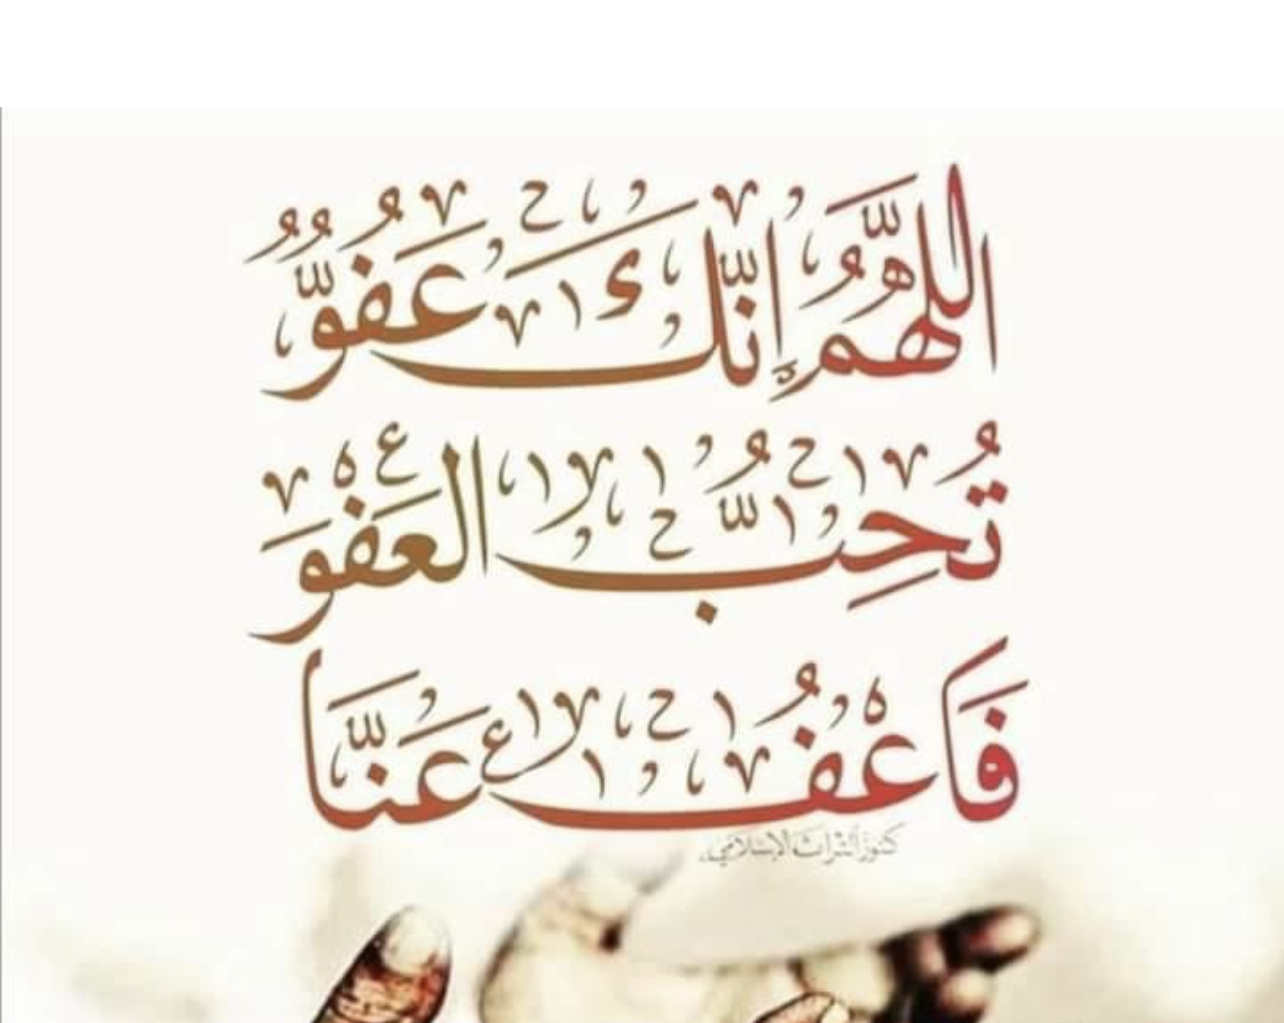 اللَّهُمَّ إِنَّكَ عَفُوٌّ
تُحِبُّ العَفْوَ
فَاعْفُ عَنَّا
كنوز التراث الإسلامي